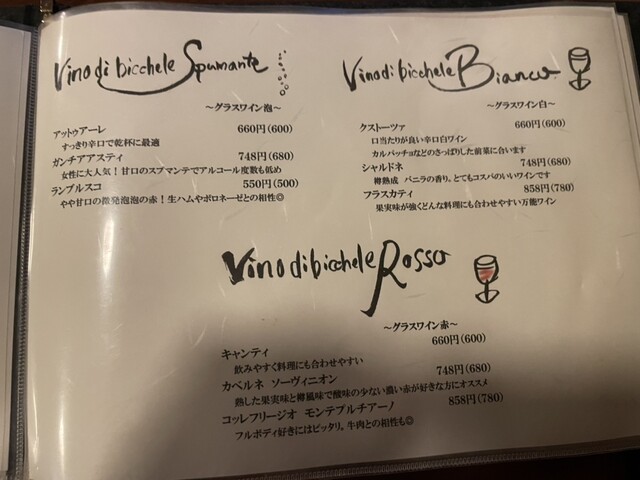 Vino di bicchele Spumante
～グラスワイン泡～
アットゥアーレ 660円(600)
すっきり辛口で乾杯に最適
ガンチアアスティ 748円(680)
女性に大人気！甘口のスプマンテでアルコール度数も低め
ランブルスコ 550円(500)
やや甘口の微発泡泡の赤！生ハムやボロネーゼとの相性◎
Vino di bicchele Bianco
～グラスワイン白～
クストーツァ 660円(600)
口当たりが良い辛口白ワイン
カルパッチョなどのさっぱりした前菜に合います
シャルドネ 748円(680)
樽熟成 バニラの香り。とてもコスパのいいワインです
フラスカティ 858円(780)
果実味が強くどんな料理にも合わせやすい万能ワイン
Vino di bicchele Rosso
～グラスワイン赤～
キャンティ 660円(600)
飲みやすく料理にも合わせやすい
カベルネ ソーヴィニオン 748円(680)
熟した果実味と樽風味で酸味の少ない濃い赤が好きな方にオススメ
コッレフリージオ モンテプルチアーノ 858円(780)
フルボディ好きにはピッタリ。牛肉との相性も◎